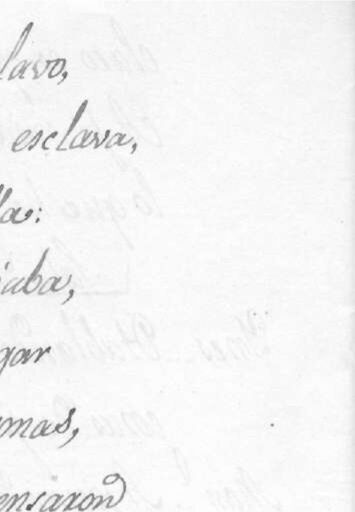 lavo,
esclava,
lla:
iaba,
gar
mas,
ensaron